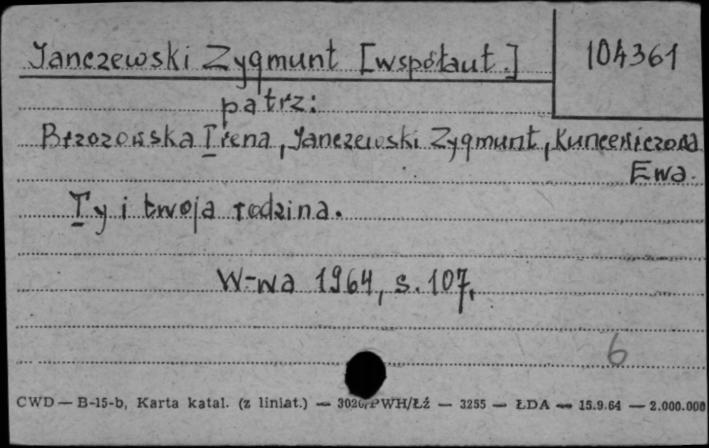 Janczewski Zygmunt [współaut.]
104361
patrz:
Brzozowska Irena, Janczewski Zygmunt, Kuncewiczowa
Ewa.
Ty i twoja rodzina.
W-wa 1964, s. 107,
6
CWD — B-15-b, Karta katal. (z liniat.) — 3020/PWH/Łź — 3255 — ŁDA — 15.9.64 — 2.000.000